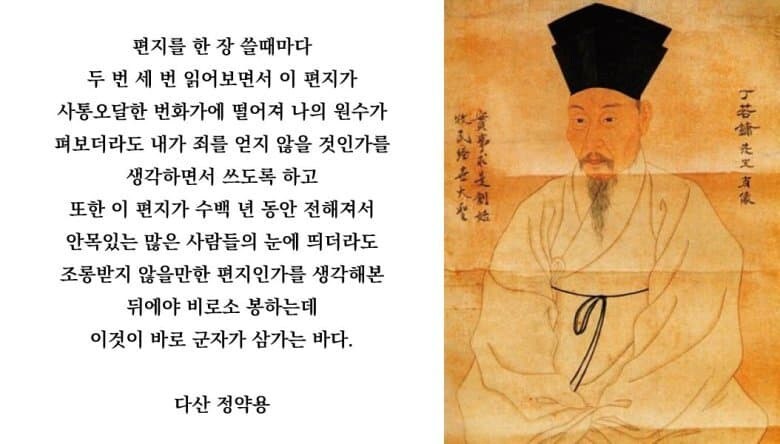 편지를 한 장 쓸때마다
두 번 세 번 읽어보면서 이 편지가
사통오달한 번화가에 떨어져 나의 원수가
펴보더라도 내가 죄를 얻지 않을 것인가를
생각하면서 쓰도록 하고
또한 이 편지가 수백 년 동안 전해져서
안목있는 많은 사람들의 눈에 띄더라도
조롱받지 않을만한 편지인가를 생각해본
뒤에야 비로소 봉하는데
이것이 바로 군자가 삼가는 바다.
다산 정약용
丁若鏞先生肖像
實事求是創始
牧民經世大聖